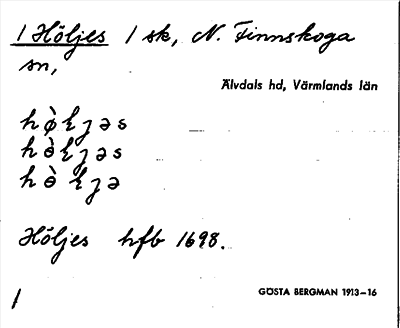 1 Höljes 1 sk, N. Finnskoga
sn,
Älvdals hd, Värmlands län
Höljes hfb 1698.
1
GÖSTA BERGMAN 1913–16